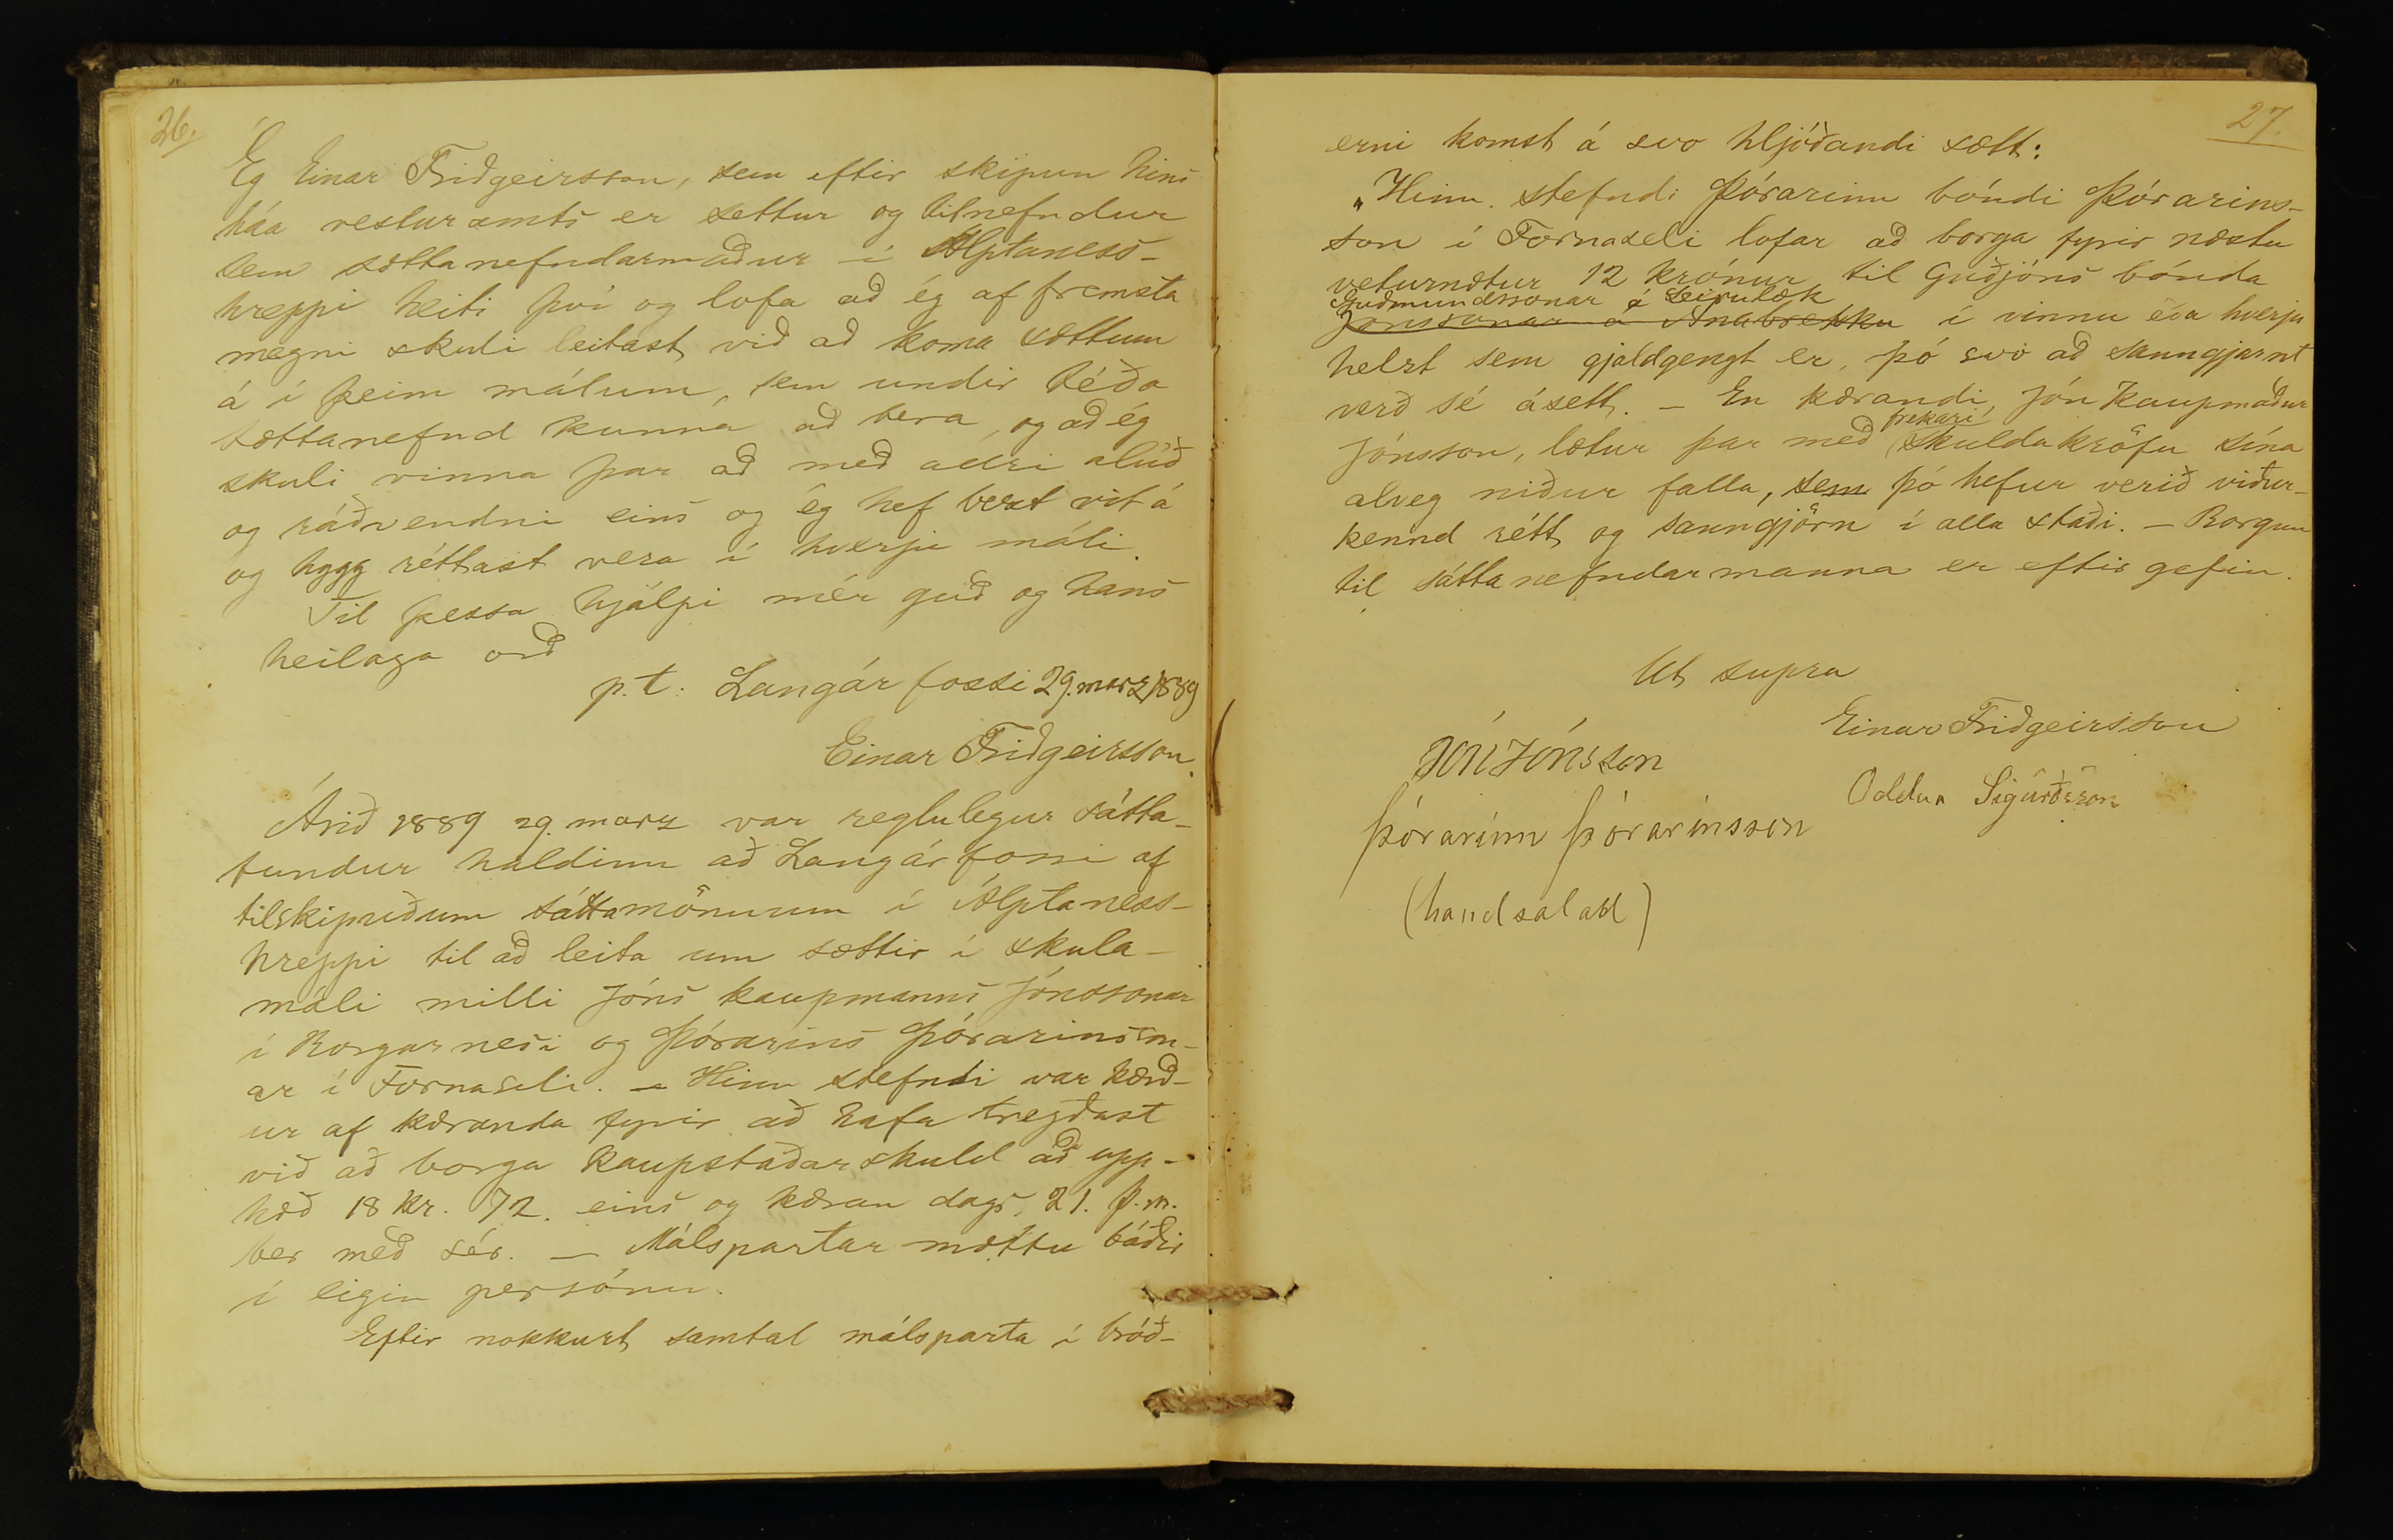 26.
Ég Einar Friðgeirsson, sem eftir skipun hins
háa vesturamts er settur og tilnefndur
sem sættanefndarmaður í Álptaness-
hreppi heiti því og lofa að ég af fremsta
megni skuli leitast við að koma sættum
á í þeim málum, sem undir téða
sættanefnd kunna að bera, og að ég
skuli vinna þar að með allri alúð
og ráðvendni eins og ég hef bezt vit á
og hygg réttast vera í hverju máli.
Til þessa hjálpi mér guð og hans
heilaga orð
p.t. Langárfossi 29. marz 1889
Einar Friðgeirsson.
Árið 1889 29. marz var reglulegur sátta-
fundur haldinn að Langárfossi af
tilskipuðum sáttamönnum í Álptaness-
hreppi til að leita um sættir í skula-
máli milli Jóns kaupmanns Jónssonar
í Borgarnesi og Þórarins Þórarinsson-
ar í Fornaseli. – Hinn stefndi var kærð-
ur af kæranda fyrir að hafa tregðast
við að borga kaupstaðarskuld að upp-
hæð 18 kr. 72. eins og kæran dags. 21. þ.m.
ber með sér. – Málspartar mættu báðir
í eigin persónu.
Eftir nokkurt samtal málsparta í bróð-
27.
erni komst á svo hljóðandi sætt:
„Hinn stefndi Þórarinn bóndi Þórarins-
son í Fornaseli lofar að borga fyrir næstu
veturnætur 12 krónur til Guðjóns bónda
Guðmundssonar á Leirulæk
Jónssonar á Anabrekku í vinnu eða hverju
helzt sem gjaldgengt er, þó svo að sanngjarnt
verð sé ásett. – En kærandi, Jón kaupmaður
frekari
Jónsson, lætur þar með skuldakröfu sína
alveg niður falla, sem þó hefur verið viður-
kennd rétt og sanngjörn í alla staði. – Borgun
til sáttanefndarmanna er eftir gefin.
Ut supra
Einar Friðgeirsson
Jón Jónsson
Oddur Sigurðsson
Þórarinn Þórarinsson
(handsalað)